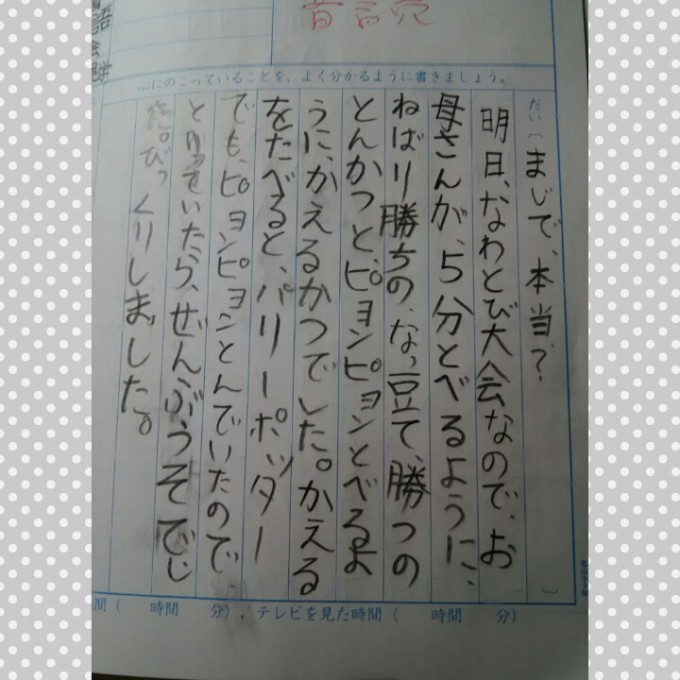 音読
心にのこっていることを、よく分かるように書きましょう。
だい〔まじで、本当？〕
明日、なわとび大会なので、お
母さんが、5分とべるように、
ねばり勝ちの、なっ豆て、勝つの
とんかつと、ピョンピョンとべるよ
うに、かえるかつでした。かえる
をたべると、パリーポッター
でも、ピョンピョンとんでいたので
いたら、ぜんぶうそでし
た。びっくりしました。
時間（　時間　分）、テレビを見た時間（　時間　分）